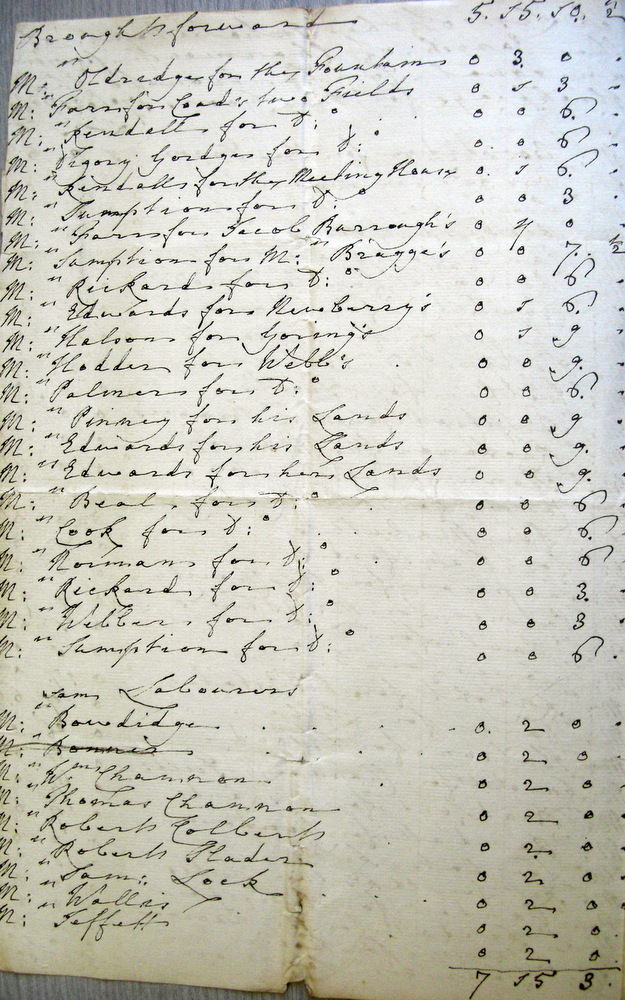 Brought forward 5. 15. 10. 1/2
Mr. Oldredge for the Fountain 0 3. 0
Mr. Farr for Coad's two Fields 0 1 3
Mr. Kendall for Do. 0 0 6.
Mr. Gorges for Do. 0 0 6
Mr. Kendall for the Meeting House 0. 1 6.
Mr. Sumption for Do. 0 0 3
Mr. Farr for Jacob Barrough's 0 4 0
Mr. Sumption for Mr. Bragge's 0 0 7. 1/2
Mr. Rickard for Do. 0 0 6
Mr. Edwards for Newberry's 0 1 6.
Mr. Halson for Young's 0 1 9
Mr. Hodder for Webb's 0 0 9.
Mr. Palmer for Do. 0 0 6.
Mr. Pinney for his Lands 0 0 9
Mr. Edwards for his Lands 0 0 9.
Mr. Edwards for her Lands 0 0 9.
Mr. Beal for Do. 0 0 6
Mr. Cook for Do. 0 0 6.
Mr. Norman for Do. 0 0 6
Mr. Rickard for Do. 0 0 3.
Mr. Webber for Do. 0 0 3
Mr. Sumption for Do. 0 0 6
Labourers
Mr. Bowdidge 0. 2 0
Mr. Bonner 0 2 0
Mr. Wm. Channon 0 2 0
Mr. Thomas Channon 0 2 0
Mr. Robert Colbert 0 2. 0
Mr. Robert Slader 0 2 0
Mr. Sam: Lock 0 2 0
Mr. Wallis 0 2 0
Mr. Jeffett 0 2 0
7 15 3.